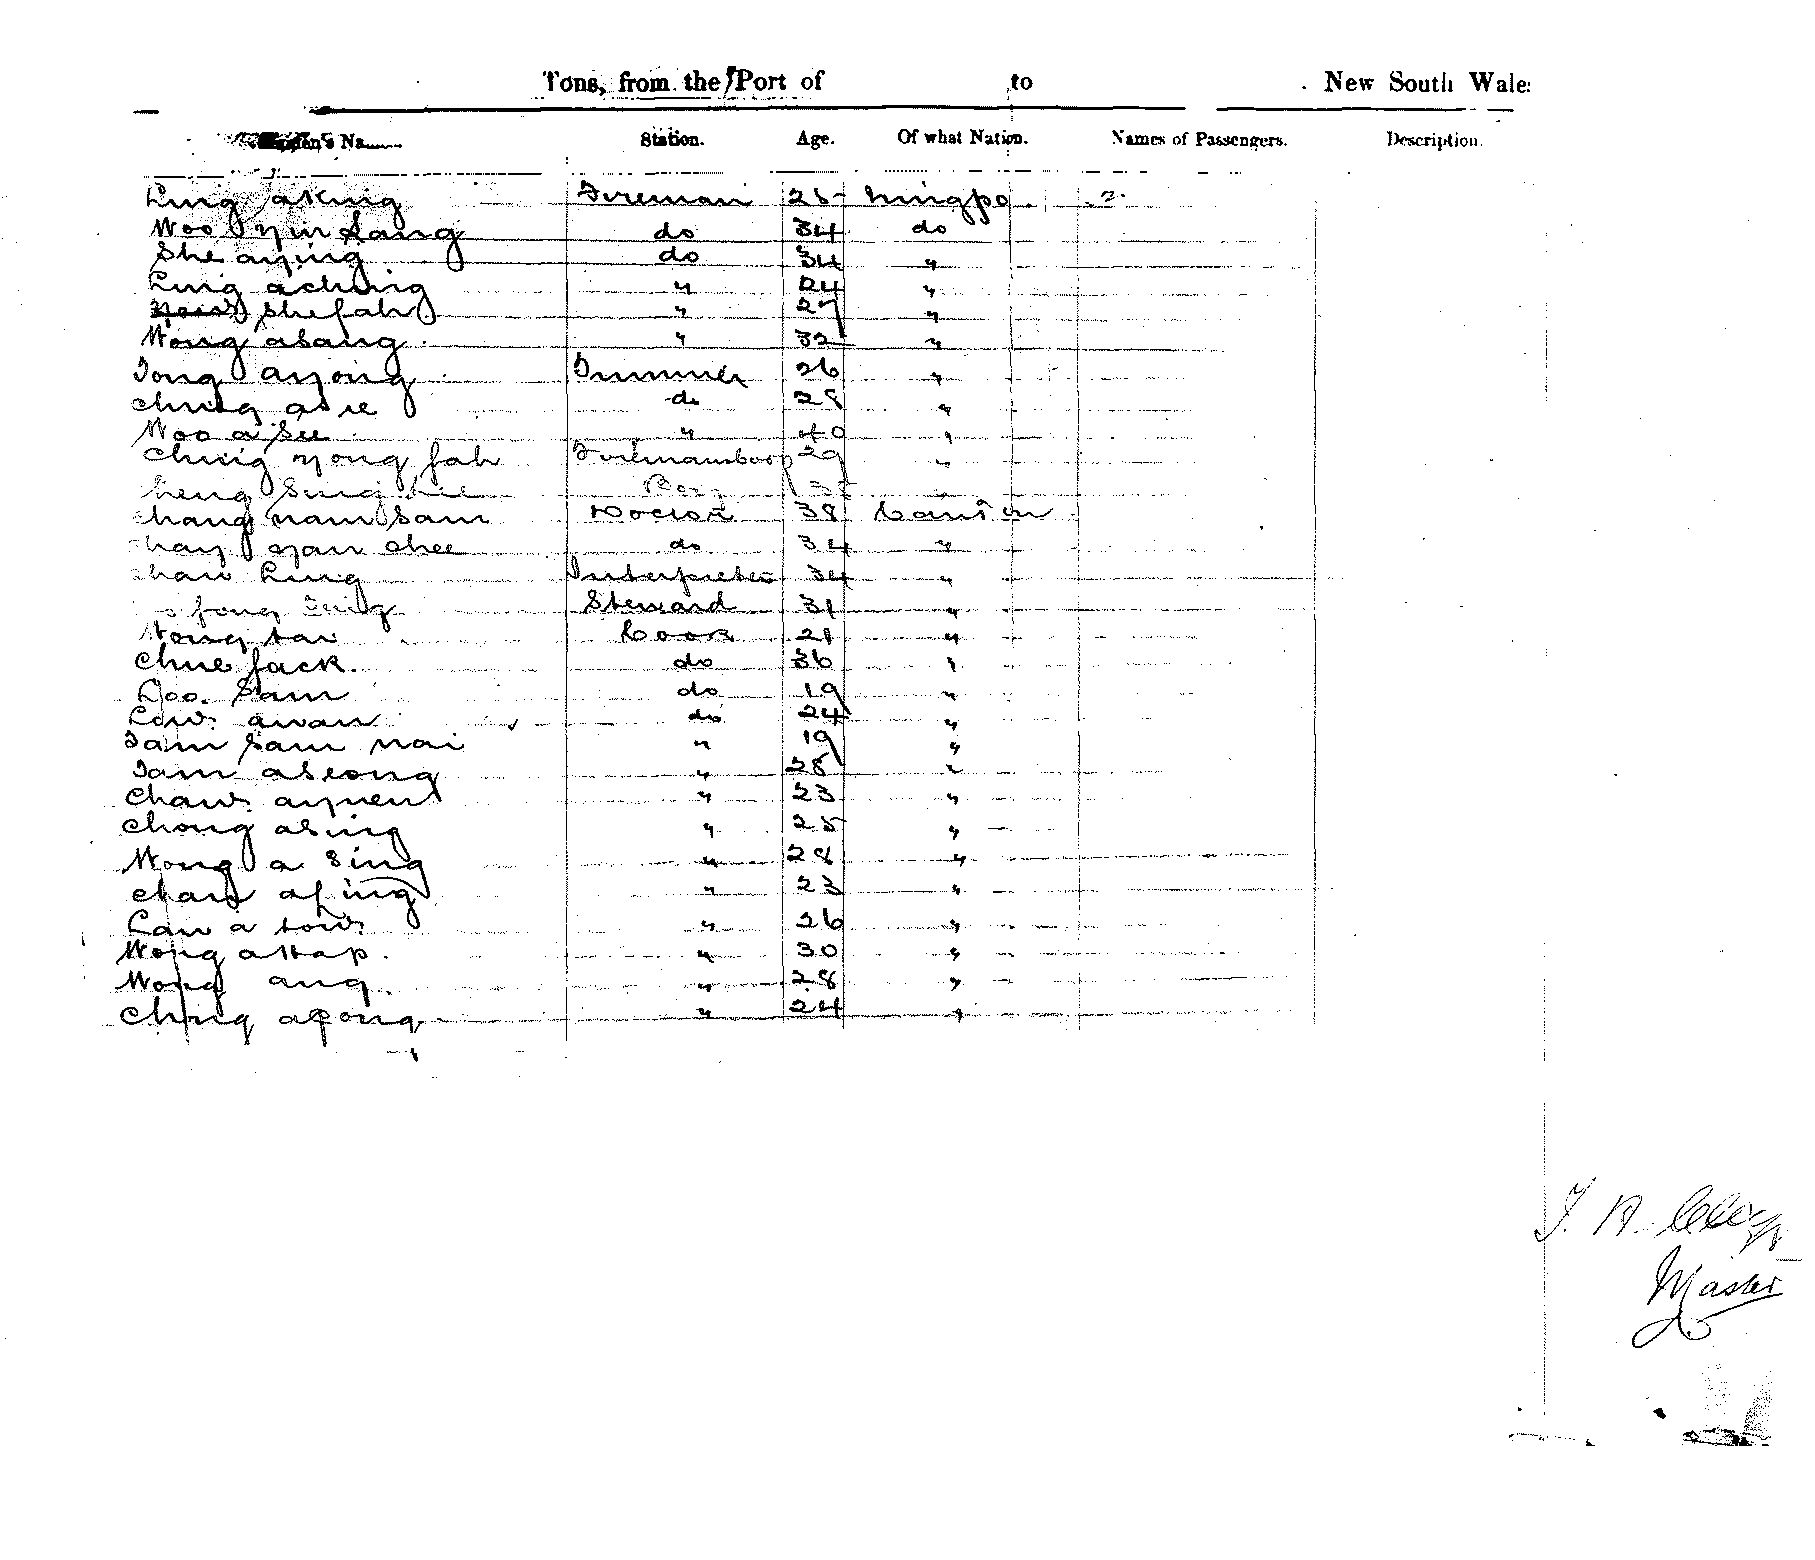 Tons, from the Port of to New South Wales
Station. Age. Of what Nation. Names of Passengers. Description.
Ling aKing Fireman 25 ningpo
Woo yin Sang do 34 do
She aying do 34 "
Ling aching " 24 "
She fah " 27 "
Wong asang " 32 "
Tong ayong Trimmer 26 "
Ching asie do 28 "
Woo a See " 40 "
Ching yong fah Firemansboy 29 "
Sing Boy "
nam Sam Doctor 38 Canton
yan chee do 34 "
Ling Interpreter 34 "
fong Steward 31 "
tai Cook 21 "
Chue Jack. do 36 "
Sam do 19 "
Low awan do 24 "
Tam Sam nai " 19 "
Tam aseong " 28 "
Chaw ayuen " 23 "
Chong asing " 25 "
Wong a Sing " 28 "
Chan aping " 23 "
Lan a tow " 26 "
Wong attap. " 30 "
Wong ang. " 28 "
Ching apong " 24 "
Master